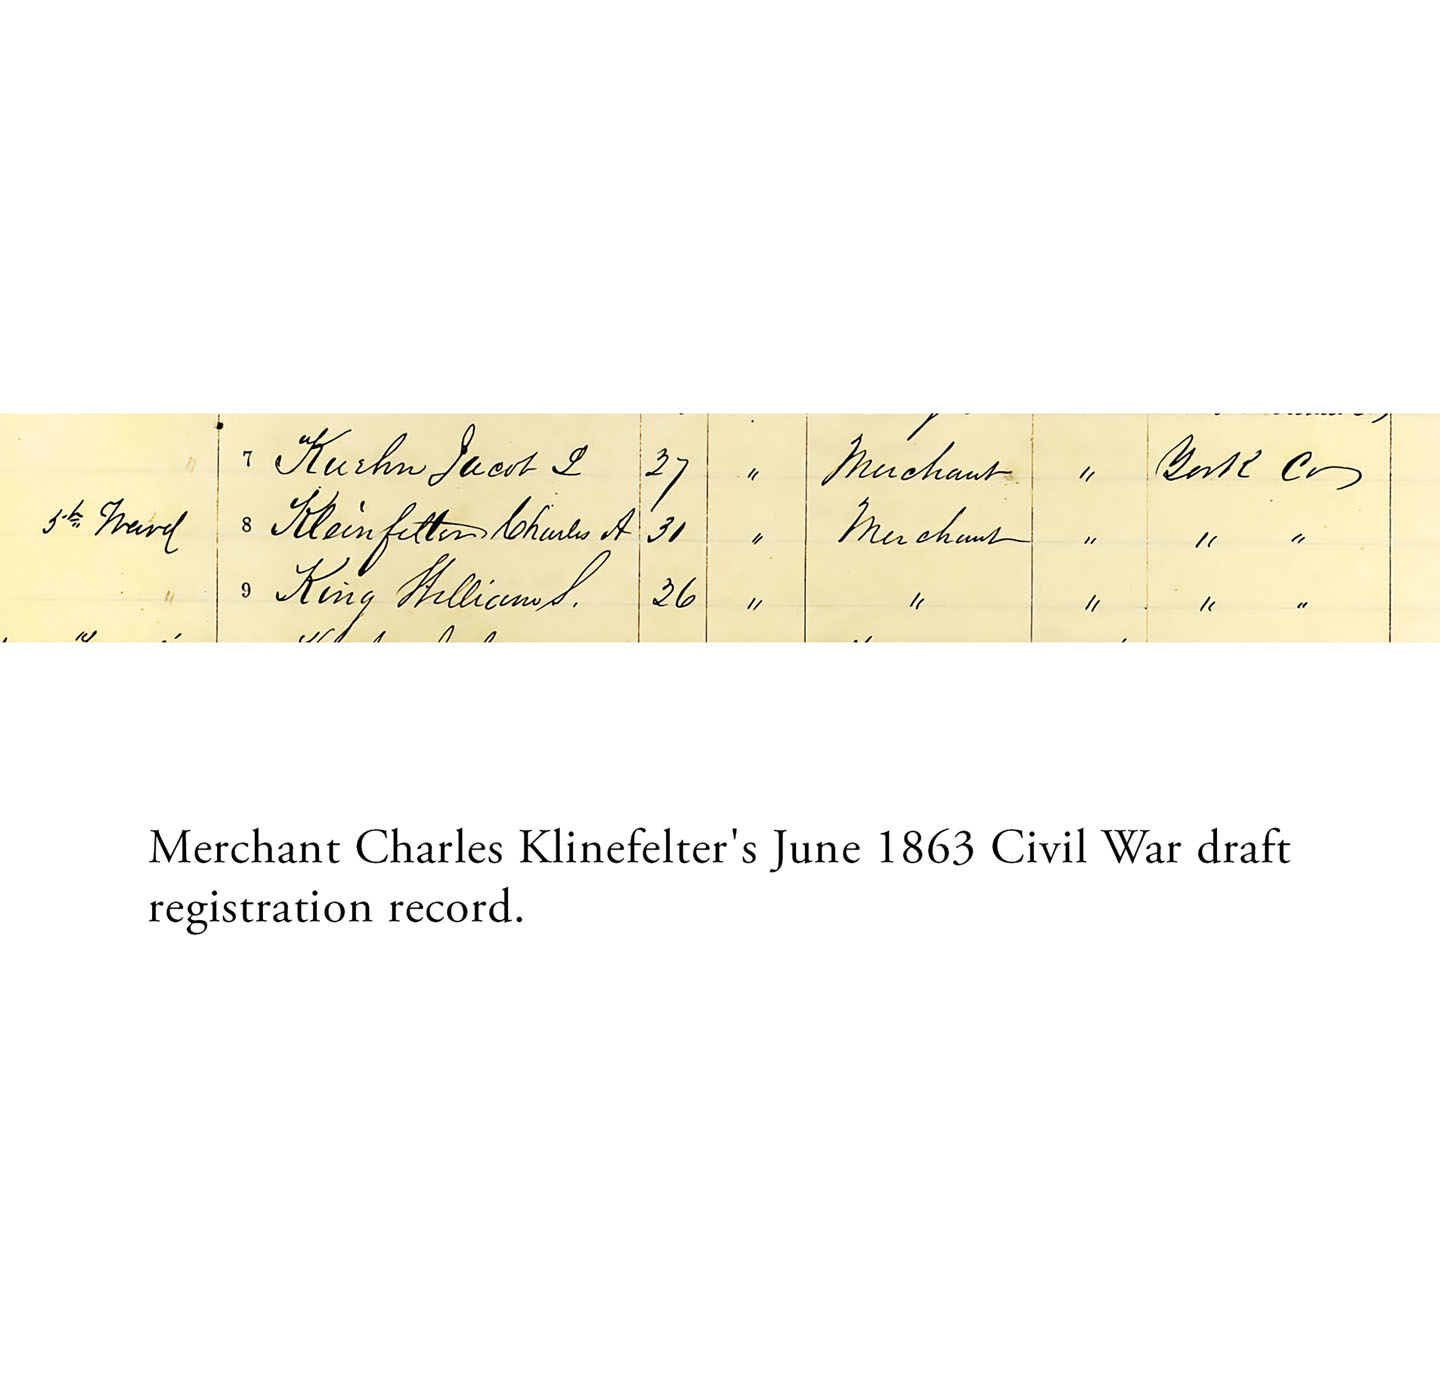 " 7 Kuehn Jacob L 27 " Merchant " York Co
5th Ward 8 Kleinfelter Charles A 31 " Merchant " " "
" 9 King William S. 26 " " " " "
Merchant Charles Klinefelter's June 1863 Civil War draft
registration record.